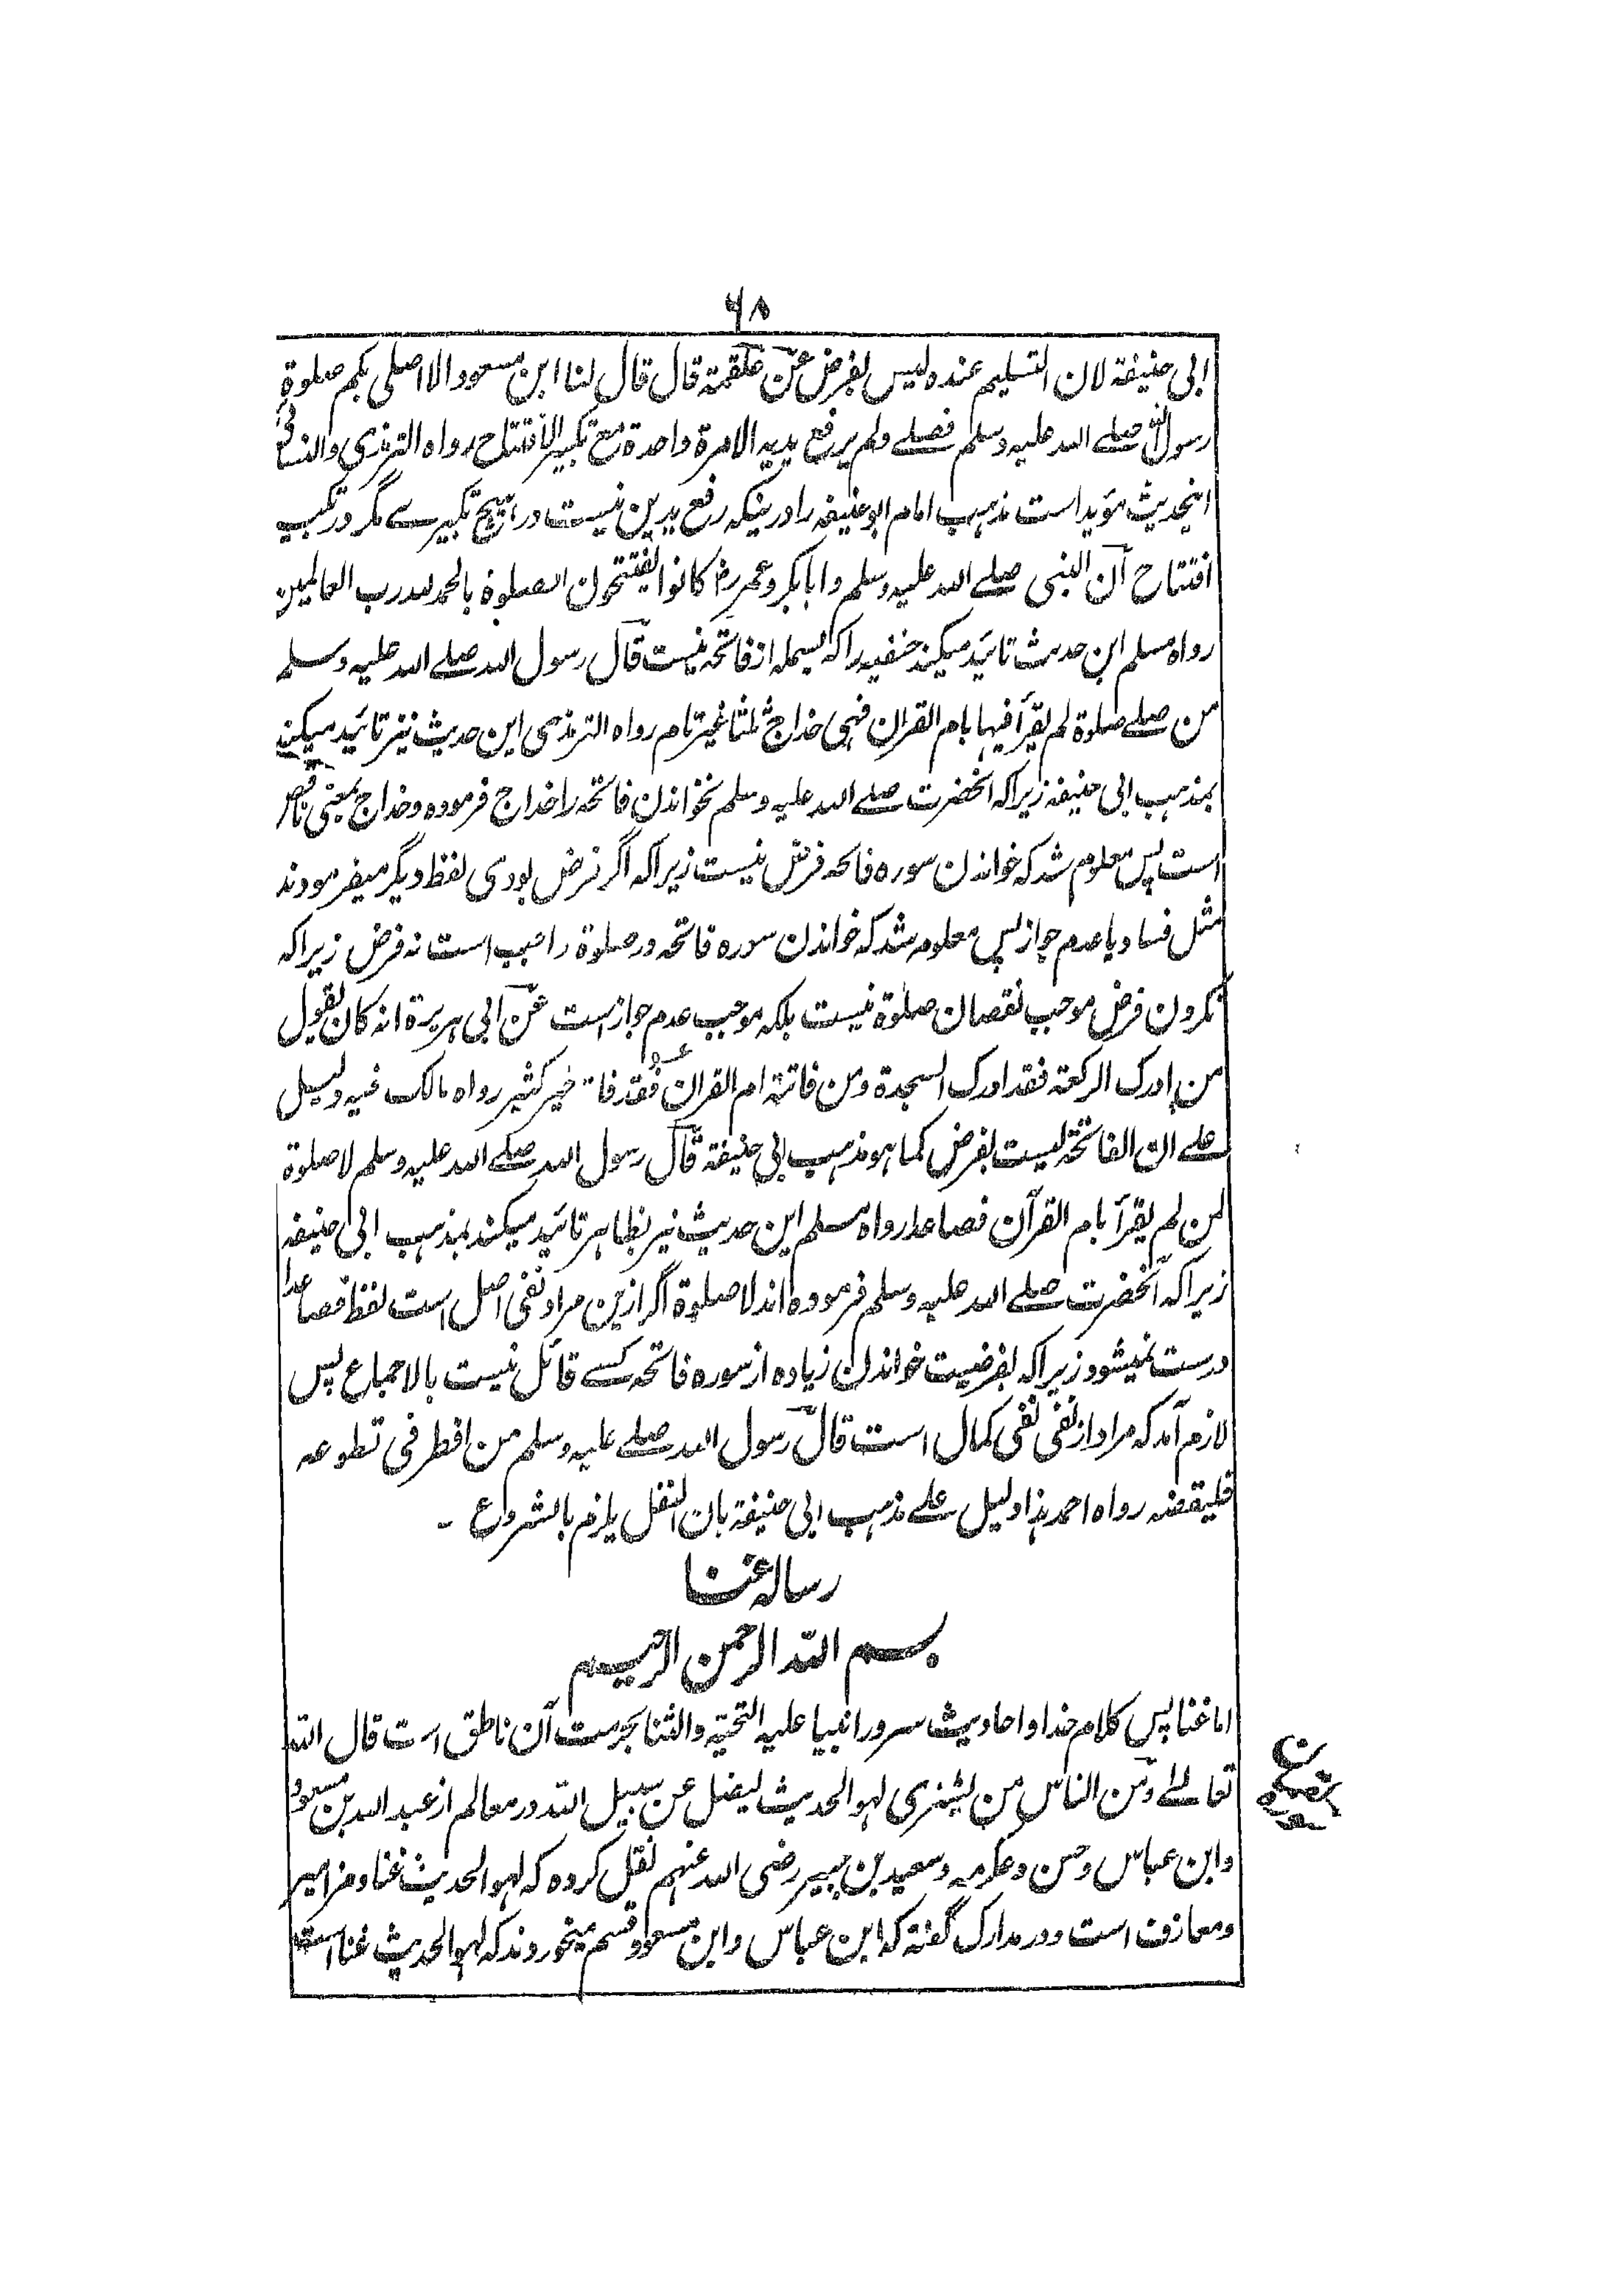 ۶۸
ابی حنیفة لان التسلیم عنده لیس بفرض عن علقمة قال قال لنا ابن مسعود الا اصلی بکم صلوة
رسول الله صلے الله علیه وسلم فصلے ولم یرفع یدیه الا مرة واحدة مع تکبیر الافتتاح رواه الترمذی والنسائی
اینحدیث مؤید است مذهب امام ابوحنیفه را درینکه رفع یدین نیست در هیچ تکبیرے مگر در تکبیر
افتتاح ان النبی صلے الله علیه وسلم و ابابکر و عمر رض کانوا یفتتحون الصلوة بالحمد لله رب العالمین
رواه مسلم این حدیث تائید میکند حنفیه را که بسمله از فاتحه نیست قال رسول الله صلے الله علیه وسلم
من صلے صلوة لم یقرأ فیها بام القران فهی خداج ثلثا غیر تام رواه الترمذی این حدیث نیز تائید میکند
بمذهب ابی حنیفه زیراکه آنحضرت صلے الله علیه وسلم نخواندن فاتحه را خداج فرموده و خداج بمعنی ناقص
است پس معلوم شد که خواندن سوره فاتحه فرض نیست زیراکه اگر فرض بودی لفظ دیگر میفرمودند
مثل فساد یا عدم جواز پس معلوم شد که خواندن سوره فاتحه در صلوة واجب است نه فرض زیراکه
نکردن فرض موجب نقصان صلوة نیست بلکه موجب عدم جواز است عن ابی هریرة انه کان یقول
من ادرک الرکعة فقد ادرک السجدة ومن فاتته ام القران فقد فاته خیر کثیر رواه مالک فیه دلیل
علے ان الفاتحة لیست بفرض کما هو مذهب ابی حنیفة قال رسول الله صلے الله علیه وسلم لا صلوة
لمن لم یقرأ بام القرآن فصاعدا رواه مسلم این حدیث نیز بظاهر تائید میکند بمذهب ابی حنیفه
زیراکه آنحضرت صلے الله علیه وسلم فرموده اند لا صلوة اگر ازین مراد نفی اصل است لفظ فصاعدا
درست نمیشود زیراکه بفرضیت خواندن زیاده از سوره فاتحه کسے قائل نیست بالاجماع پس
لازم آمد که مراد از نفی نفی کمال است قال رسول الله صلے علیه وسلم من افطر فی تطوعه
فلیقضه رواه احمد هذا دلیل علے مذهب ابی حنیفة بان النفل یلزم بالشروع -
رساله غنا
بسم الله الرحمن الرحیم
اما غنا پس کلام خدا و احادیث سرور انبیا علیه التحیة والثنا بحرمت آن ناطق است قال الله
تعالے ومن الناس من یشتری لهو الحدیث لیضل عن سبیل الله در معالم از عبد الله بن مسعود
و ابن عباس و حسن و عکرمه و سعید بن جبیر رضی الله عنهم نقل کرده که لهو الحدیث غنا و مزامیر
و معازف است و در مدارک گفته که ابن عباس و ابن مسعود قسم میخوردند که لهو الحدیث غنا است